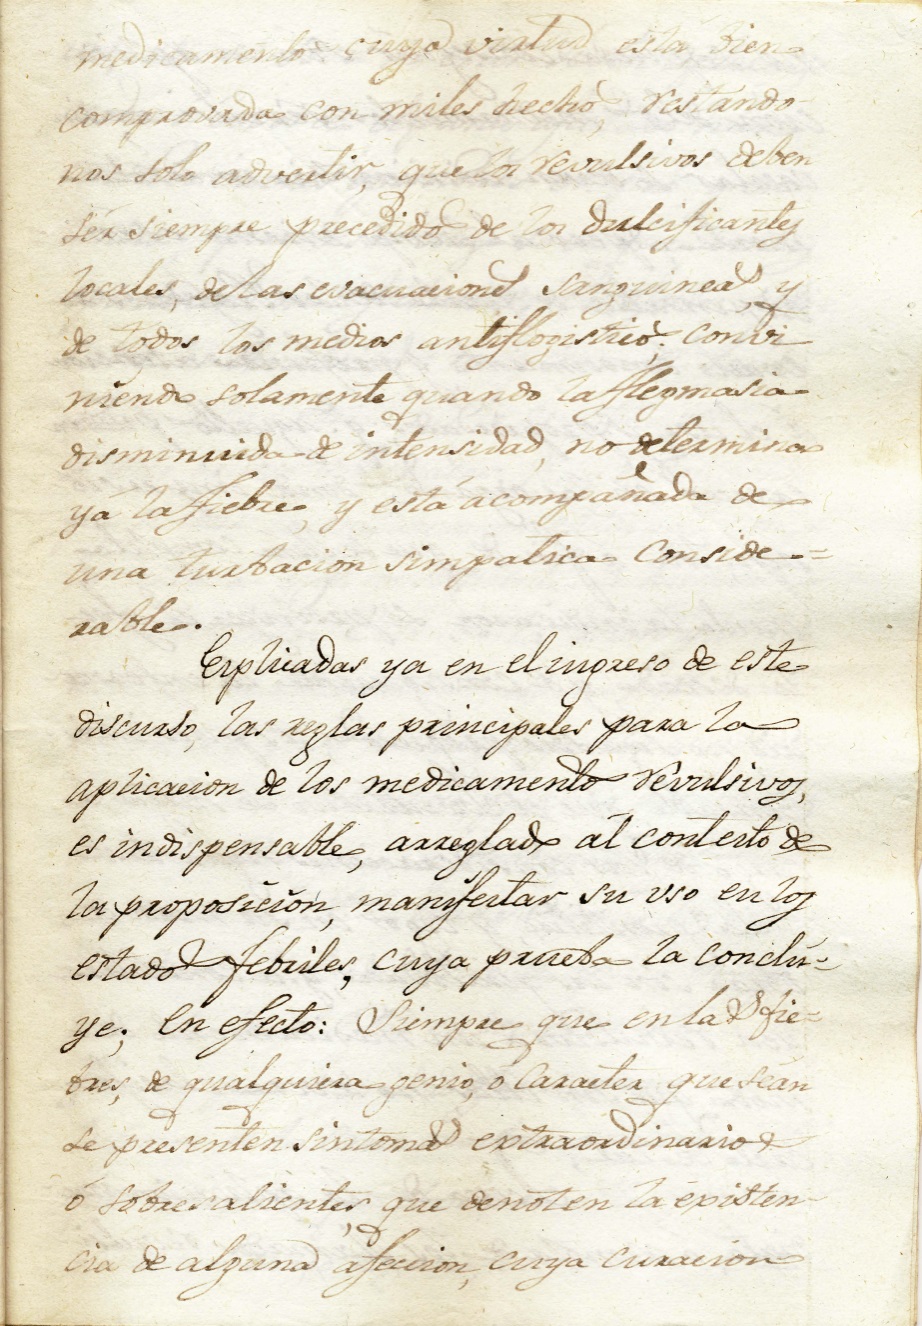 medicamento cuya virtud está bien
comprovada con miles hechos, restando
nos solo advertir, que los revulsivos deben
sér siempre precedidos de los dulcificantes
locales, de las evacuaciones sanguineas, y
de todos los medios antiflogisticos: convi
niendo solamente quando la flegmasia
disminuida de intensidad, no determina
yá la fiebre, y está acompañada de
una turbacion simpatica conside-=
rable.
Explicadas ya en el ingreso de este
discurso, las reglas principales para la
aplicacion de los medicamentos revulsivos,
es indispensable, arreglado al contexto de
la proposicion, manifestar su uso en los
estados febriles, cuya prueba la conclú-=
ye; En efecto: Siempre que en las fie=
bres, de qualquiera genio, ó caracter que seán
se presenten sintomas extraordinarios
ó sobresalientes, que denoten la existen-
cia de alguna afeccion, cuya curacion